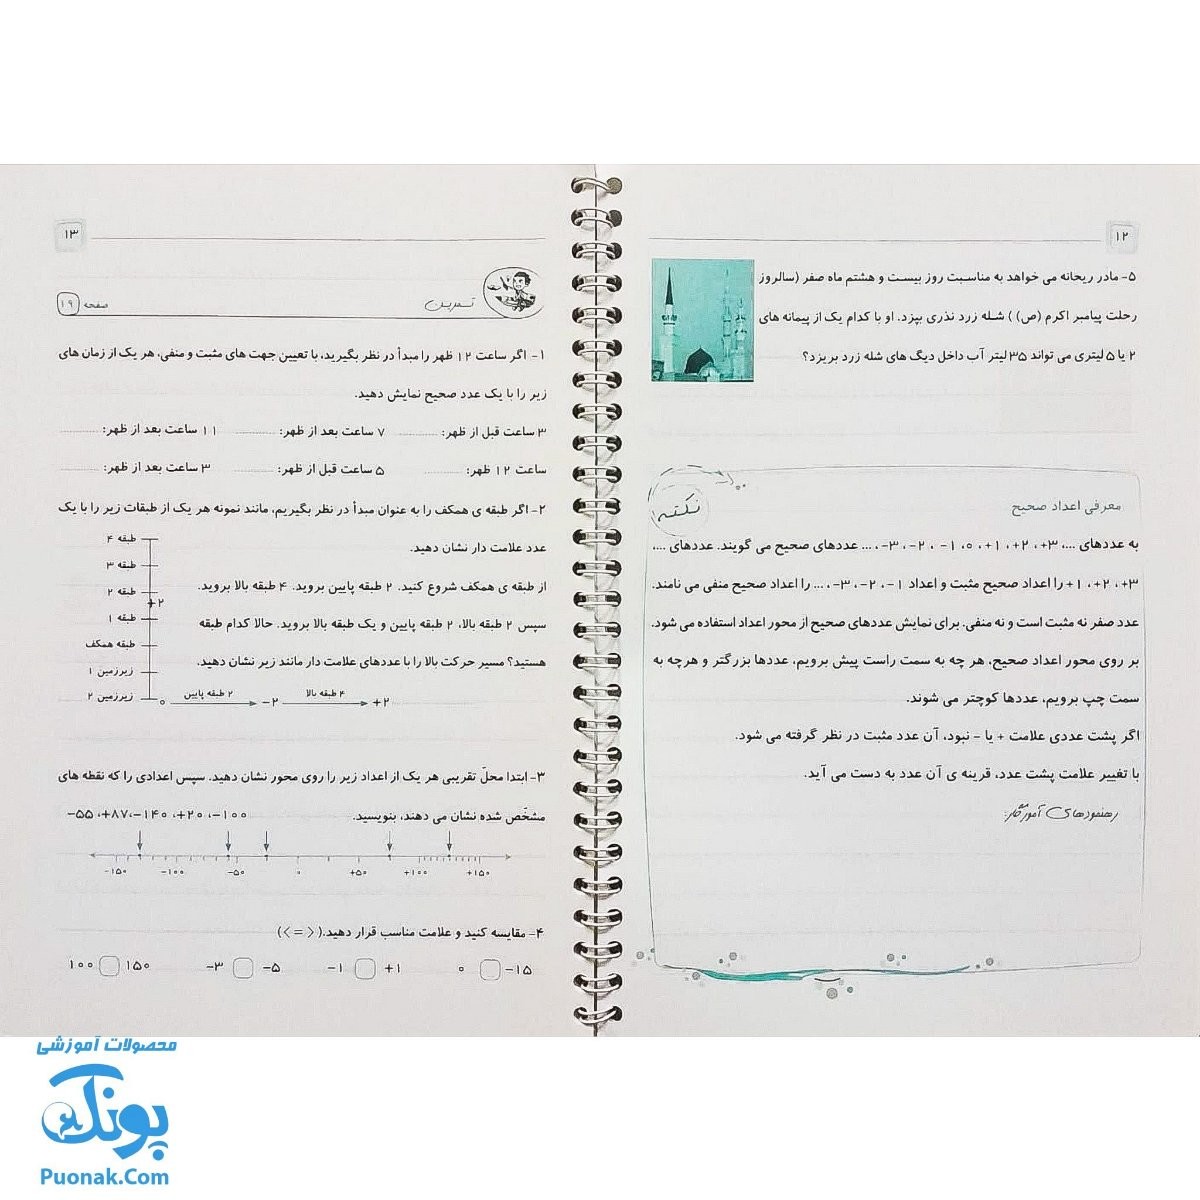 ۱۲
۵- مادر ریحانه می خواهد به مناسبت روز بیست و هشتم ماه صفر (سالروز
رحلت پیامبر اکرم (ص) ) شله زرد نذری بپزد. او با کدام یک از پیمانه های
۲ یا ۵ لیتری می تواند ۳۵ لیتر آب داخل دیگ های شله زرد بریزد؟
نکته
معرفی اعداد صحیح
به عددهای ...، ۳+، ۲+، ۱+، ۰، ۱-، ۲-، ۳-، ... عددهای صحیح می گویند. عددهای ...،
۳+، ۲+، ۱+ را اعداد صحیح مثبت و اعداد ۱-، ۲-، ۳-، ... را اعداد صحیح منفی می نامند.
عدد صفر نه مثبت است و نه منفی. برای نمایش عددهای صحیح از محور اعداد استفاده می شود.
بر روی محور اعداد صحیح، هر چه به سمت راست پیش برویم، عددها بزرگتر و هرچه به
سمت چپ برویم، عددها کوچتر می شوند.
اگر پشت عددی علامت + یا - نبود، آن عدد مثبت در نظر گرفته می شود.
با تغییر علامت پشت عدد، قرینه ی آن عدد به دست می آید.
رهنمودهای آموزگار:
۱۳
تمرین
صفحه ۱۹
۱- اگر ساعت ۱۲ ظهر را مبدأ در نظر بگیرید، با تعیین جهت های مثبت و منفی، هر یک از زمان های
زیر را با یک عدد صحیح نمایش دهید.
۳ ساعت قبل از ظهر: ............ ۷ ساعت بعد از ظهر: ............ ۱۱ ساعت بعد از ظهر: ............
ساعت ۱۲ ظهر: ............ ۵ ساعت قبل از ظهر: ............ ۳ ساعت بعد از ظهر: ............
۲- اگر طبقه ی همکف را به عنوان مبدأ در نظر بگیریم، مانند نمونه هر یک از طبقات زیر را با یک
عدد علامت دار نشان دهید.
از طبقه ی همکف شروع کنید. ۲ طبقه پایین بروید. ۴ طبقه بالا بروید.
سپس ۲ طبقه بالا، ۲ طبقه پایین و یک طبقه بالا بروید. حالا کدام طبقه
هستید؟ مسیر حرکت بالا را با عددهای علامت دار مانند زیر نشان دهید.
طبقه ۴
طبقه ۳
طبقه ۲
+۲
طبقه ۱
طبقه همکف
زیرزمین ۱
زیرزمین ۲
۰ ۲ طبقه پایین -۲ ۴ طبقه بالا +۲
۳- ابتدا محلّ تقریبی هر یک از اعداد زیر را روی محور نشان دهید. سپس اعدادی را که نقطه های
مشخّص شده نشان می دهند، بنویسید.
-۵۵ ،+۸۷،-۱۴۰ ،+۲۰ ،-۱۰۰
-۱۵۰ -۱۰۰ -۵۰ ۰ +۵۰ +۱۰۰ +۱۵۰
۴- مقایسه کنید و علامت مناسب قرار دهید.( < = > )
۱۰۰ □ ۱۵۰ -۳ □ -۵ -۱ □ +۱ ۰ □ -۱۵
محصولات آموزشی
پونک
Puonak.Com